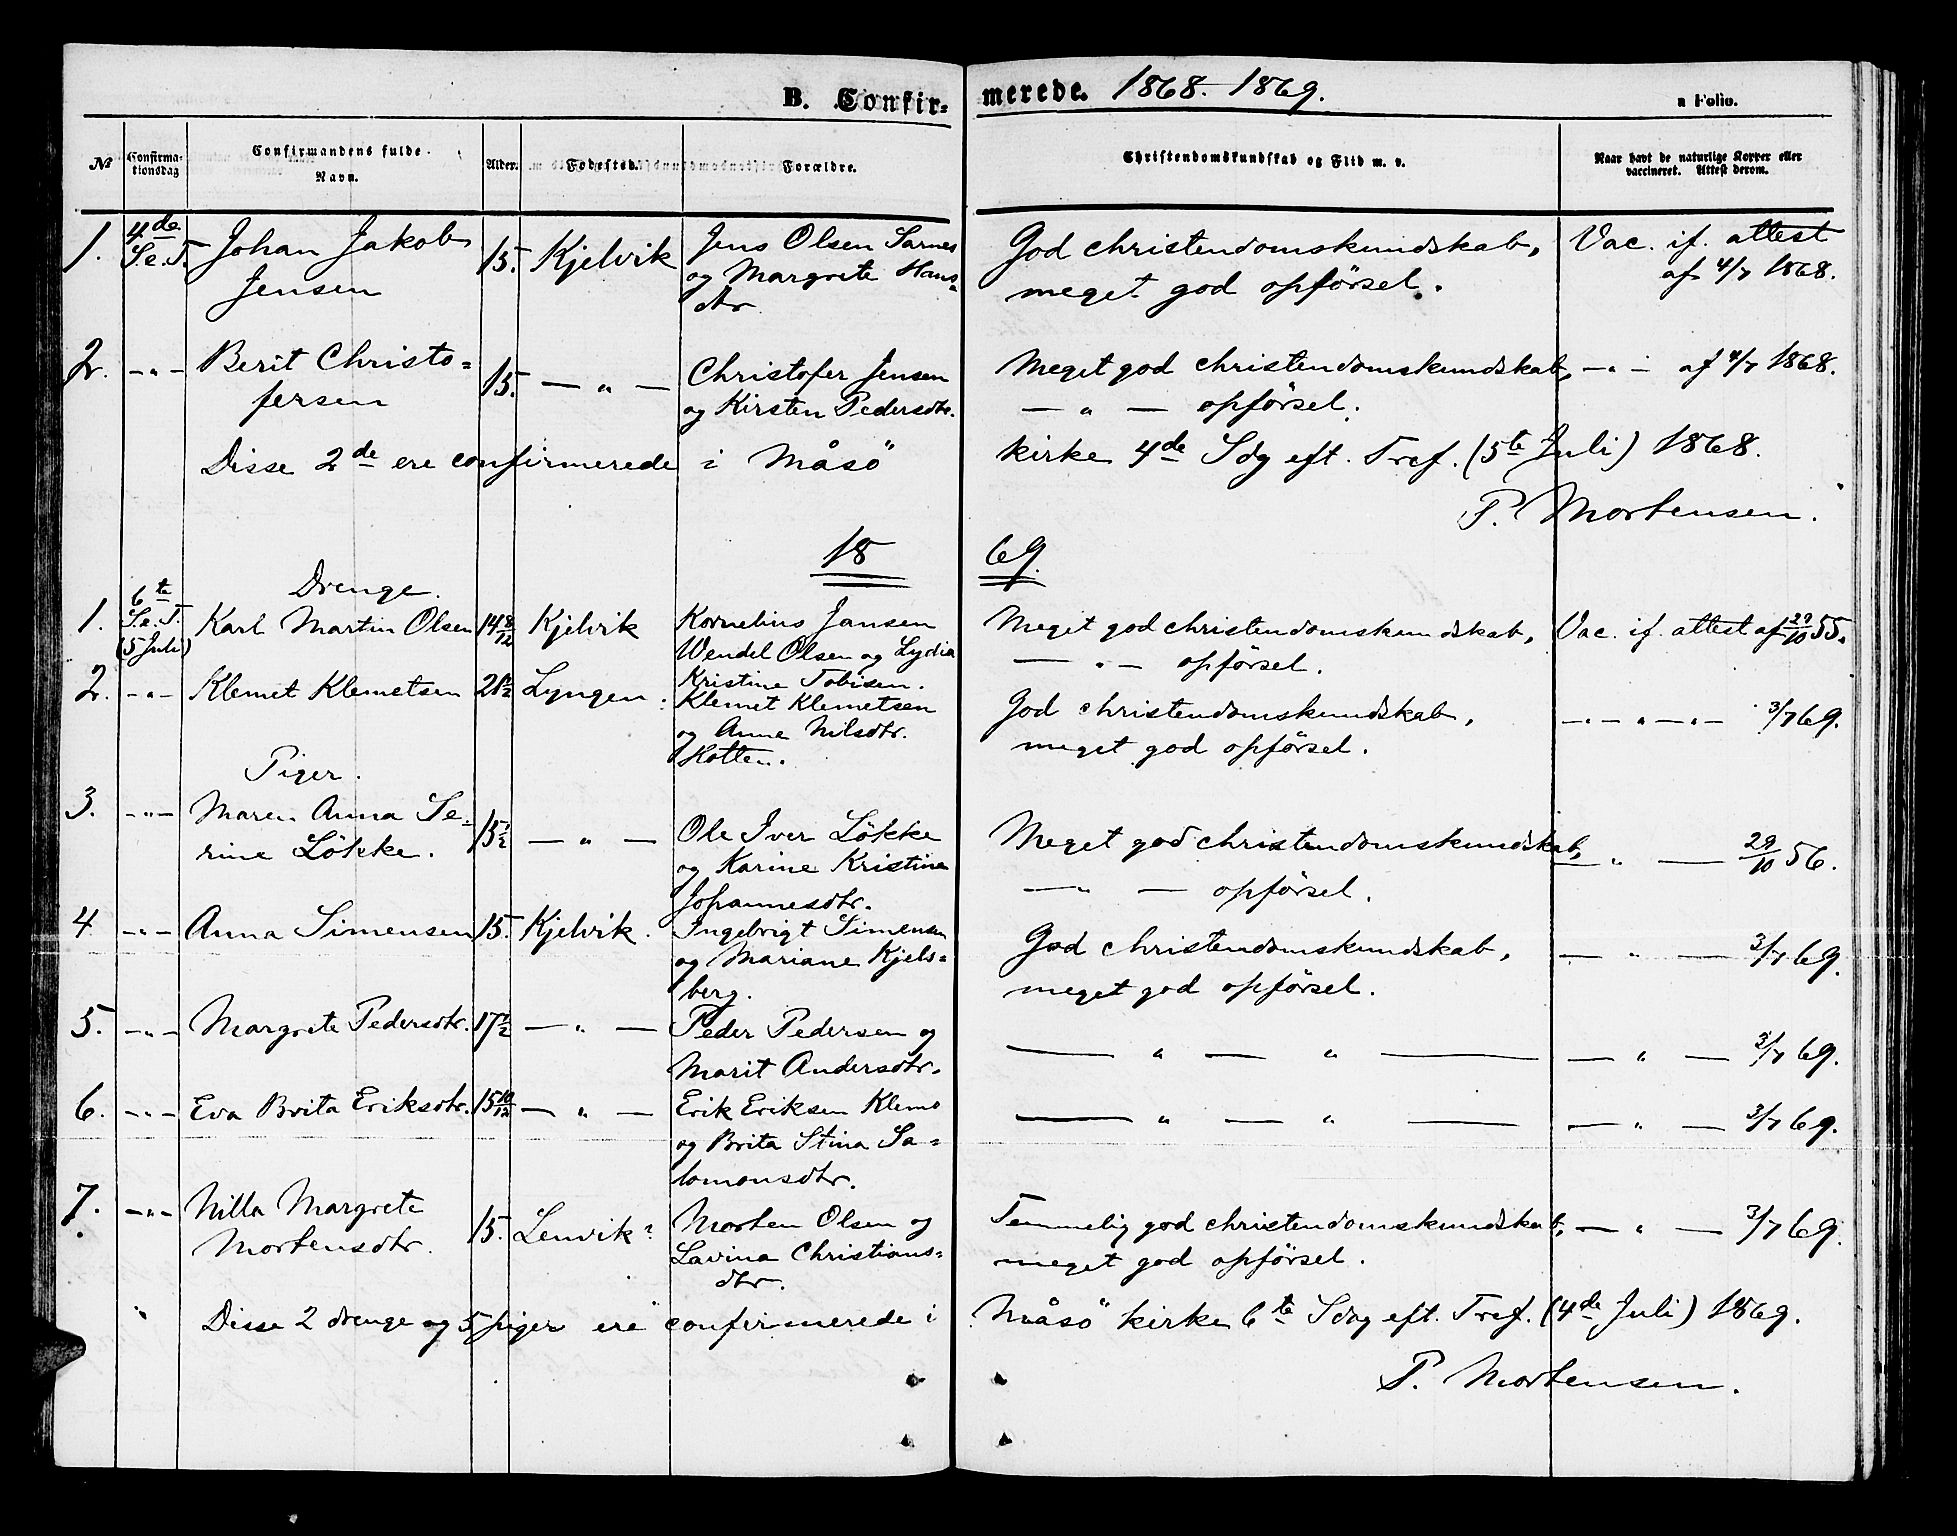 B. Confirmerede. 1868-1869.
a Folio.
№ Confirmationsdag Confirmandens fulde Navn. Alder. Fødested. Forældre. Christendomskundskab og Flid m. v. Naar havt de naturlige Kopper eller vaccineret. Attest derom.
1. 4de S. e. T. Johan Jakob Jensen 15. Kjelvik Jens Olsen Sarnes og Margrete Hans=dtr God christendomskundskab, meget god opförsel. Vac. if. attest af 4/7 1868.
2. -"- Berit Christo=fersen 15. — " — Christofer Jensen og Kirsten Pedersdtr. Meget god christendomskundskab, — " — opförsel. -"- af 4/7 1868.
Disse 2de ere confirmerede i Måsö kirke 4de Sdg eft. Tref. (5te Juli) 1868.
P. Mortensen.
1869.
Drenge.
1. 6te S. e. T. (5 Juli) Karl Martin Olsen 14 8/12 Kjelvik Kornelius Jansen Wendel Olsen og Lydia Kristine Tobisen. Meget god christendomskundskab, — " — opförsel. Vac. if. attest af 29/10 55.
2. -"- Klemet Klemetsen 21 1/2 Lyngen: Klemet Klemetsen og Anna Nilsdtr. Hotten. God christendomskundskab, meget god opförsel. -"-"- 3/7 69.
Piger.
3. -"- Maren Anna Se=rine Lökke. 15 1/2 — " — Ole Iver Lökke og Karine Kristine Johannesdtr. Meget god christendomskundskab, — " — opförsel. — " — 29/10 56.
4 -"- Anna Simensen 15. Kjelvik. Ingebrigt Simensen og Mariane Kjels=berg. God christendomskundskab, meget god opförsel. — " — 3/7 69.
5. -"- Margrete Pedersdtr. 17 1/2 — " — Peder Pedersen og Marit Andersdtr. — " — " — — " — 3/7 69.
6. -"- Eva Brita Eriksdtr. 15 10/12 — " — Erik Eriksen Klemo og Brita Stina Sa=lomonsdtr. — " — " — — " — 3/7 69.
7. -"- Nilla Margrete Mortensdtr. 15. Lenvik? Morten Olsen og Lavina Christians=dtr. Temmelig god christendomskundskab, meget god opförsel. — " — 3/7 69.
Disse 2 drenge og 5 piger ere confirmerede i Måsö kirke 6te Sdg eft. Tref. (4de Juli) 1869.
P. Mortensen.